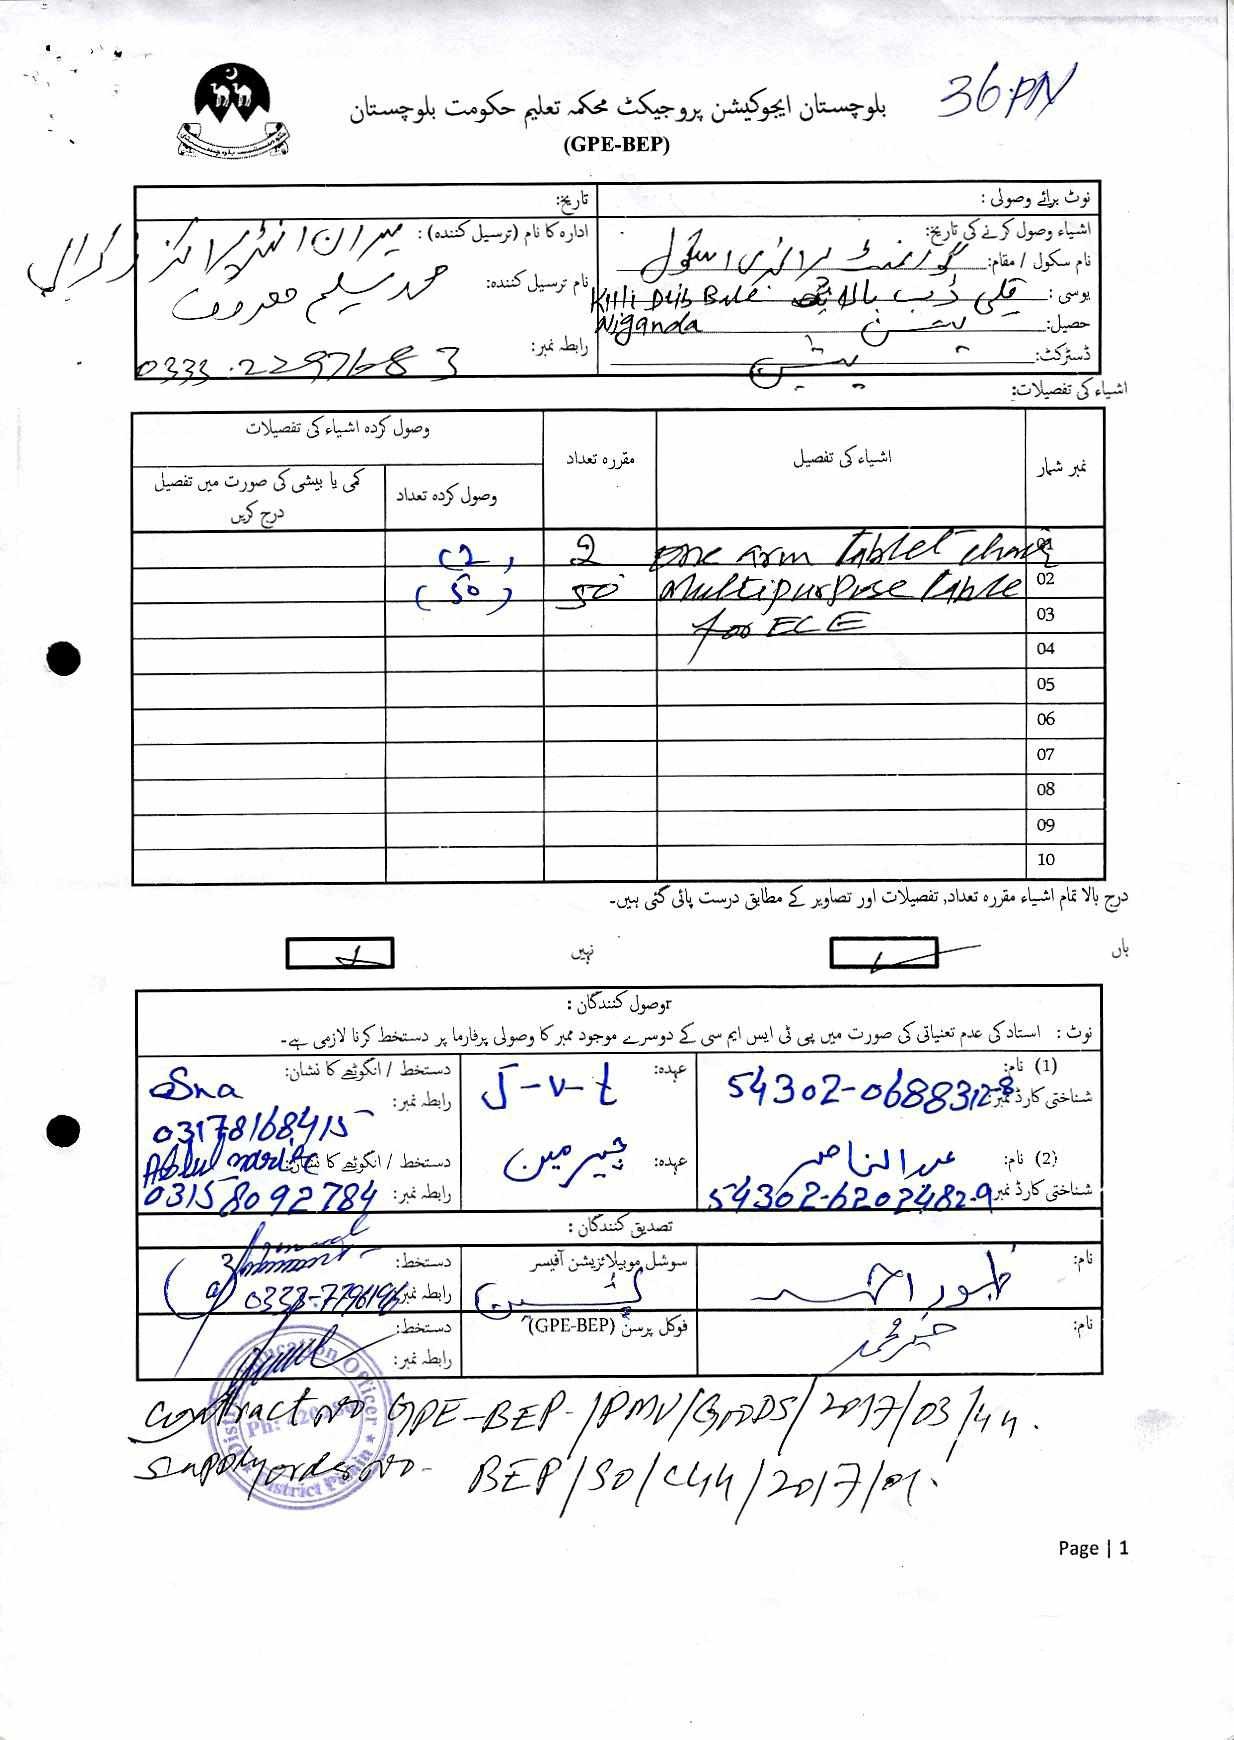 36 PN
بلوچستان ایجوکیشن پروجیکٹ محکمہ تعلیم حکومت بلوچستان
(GPE-BEP)
نوٹ برائے وصولی :
تاریخ:
اشیاء وصول کرنے کی تاریخ:
نام سکول / مقام: گورنمنٹ پرائمری سکول
یوسی : قلی ڈب بالا Killi Dub Bala
Niganda
حصیل: پشین
ڈسٹرکٹ: پشین
ادارہ کا نام (ترسیل کنندہ) : میران انٹرپرائزز
نام ترسیل کنندہ: محمد سلیم معروف
رابطہ نمبر: 0333.2297683
اشیاء کی تفصیلات:
نمبر شمار اشیاء کی تفصیل مقررہ تعداد وصول کردہ اشیاء کی تفصیلات
وصول کردہ تعداد کمی یا بیشی کی صورت میں تفصیل درج کریں
01 one arm tablet chair 2 (2)
02 Multipurpose table 50 (50)
03 for ECE
04
05
06
07
08
09
10
درج بالا تمام اشیاء مقررہ تعداد, تفصیلات اور تصاویر کے مطابق درست پائی گئی ہیں۔
ہاں نہیں
وصول کنندگان :
نوٹ : استاد کی عدم تعنیاتی کی صورت میں پی ٹی ایس ایم سی کے دوسرے موجود ممبر کا وصولی پرفارما پر دستخط کرنا لازمی ہے۔
(1) نام: عہدہ: J-v-t دستخط / انگوٹھے کا نشان: Sna
شناختی کارڈ نمبر 54302-0688312-8 رابطہ نمبر: 03178168415
(2) نام: عبدالناصر عہدہ: چیرمین دستخط / انگوٹھے کا نشان: Abdul
شناختی کارڈ نمبر 54302-6202482-9 رابطہ نمبر: 03158092784
تصدیق کنندگان :
نام: ظہور احمد سوشل موبیلائزیشن آفیسر پشین دستخط:
رابطہ نمبر: 0333-7796196
نام: فوکل پرسن (GPE-BEP) دستخط:
رابطہ نمبر:
Education Officer
District Pishin
Contract no GPE-BEP-/PMU/GOODS/2017/03/44.
Supply order no- BEP/SO/C44/2017/01.
Page | 1